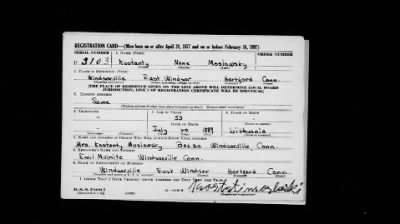 REGISTRATION CARD—(Men born on or after April 28, 1877 and on or before February 16, 1897)
SERIAL NUMBER 1. NAME (Print)
U 3103 Kostanty None Moslawsky
2. PLACE OF RESIDENCE (Print)
Windsorville East Windsor Hartford Conn.
[THE PLACE OF RESIDENCE GIVEN ON THE LINE ABOVE WILL DETERMINE LOCAL BOARD
JURISDICTION; LINE 2 OF REGISTRATION CERTIFICATE WILL BE IDENTICAL]
3. MAILING ADDRESS
Same
4. TELEPHONE 5. AGE IN YEARS 6. PLACE OF BIRTH
53
DATE OF BIRTH
July 20 1889 Lithuania
7. NAME AND ADDRESS OF PERSON WHO WILL ALWAYS KNOW YOUR ADDRESS
Mrs. Kostanty Moslawsky Windsorville Conn.
8. EMPLOYER'S NAME AND ADDRESS
Emil Windsorville Conn.
9. PLACE OF EMPLOYMENT OR BUSINESS
Windsorville East Windsor Hartford Conn.
I AFFIRM THAT I HAVE VERIFIED ABOVE ANSWERS AND THAT THEY ARE TRUE.
D. S. S. Form 1